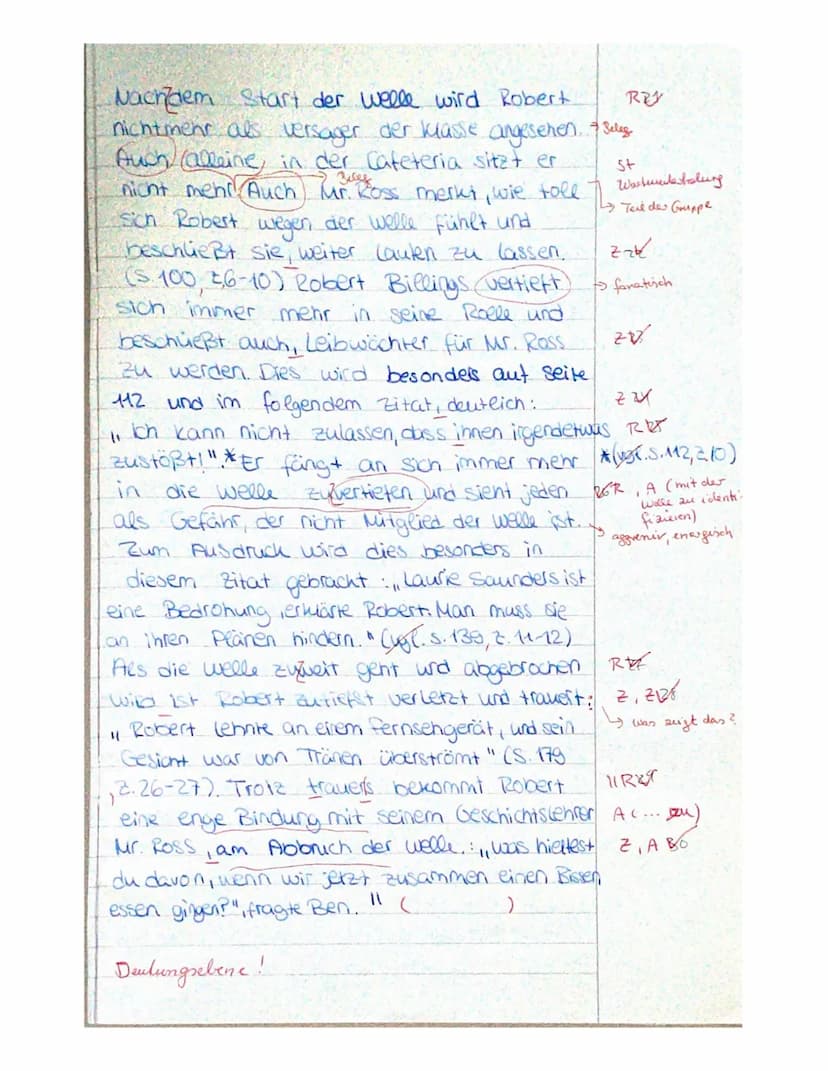 Nachdem Start der Welle wird Robert
nichtmehr als Versager der Klasse angesehen. → Beleg
Auch (alleine) in der Cafeteria sitzt er
St
Wortwiederholung
nicht mehr. Auch Mr. Ross merkt, wie toll
Beleg
↳ Teil der Gruppe
sich Robert wegen der Welle fühlt und
beschließt sie, weiter laufen zu lassen. Z
(S. 100, Z.6-10) Robert Billings vertieft → fanatisch
sich immer mehr in seine Rolle und
beschließt auch, Leibwächter für Mr. Ross Z
zu werden. Dies wird besonders auf Seite
112 und im folgendem Zitat, deutlich: Z
„Ich kann nicht zulassen, dass ihnen irgendetwas R
zustößt!".* Er fängt an sich immer mehr *(vgl. S. 112, Z. 10)
in die Welle zuvertiefen und sieht jeden R, A (mit der
Welle zu identi-
fizieren)
als Gefahr, der nicht Mitglied der Welle ist.
→ aggressiv, energisch
Zum Ausdruck wird dies besonders in
diesem Zitat gebracht: „Laurie Saunders ist
eine Bedrohung, erklärte Robert. Man muss sie
an ihren Plänen hindern." (vgl. S. 139, Z. 11-12)
Als die Welle zuweit geht und abgebrochen R
wird ist Robert zutiefst verletzt und trauert: Z, Z
↳ was zeigt das?
„Robert lehnte an einem Fernsehgerät, und sein
Gesicht war von Tränen überströmt" (S. 179
, Z. 26-27). Trotz trauers bekommt Robert
eine enge Bindung mit seinem Geschichtslehrer A (... zu)
Mr. Ross, am Abbruch der Welle.: „was hieltest Z, A
du davon, wenn wir jetzt zusammen einen Bissen
essen gingen?", fragte Ben. " ( )
Deutungsebene!